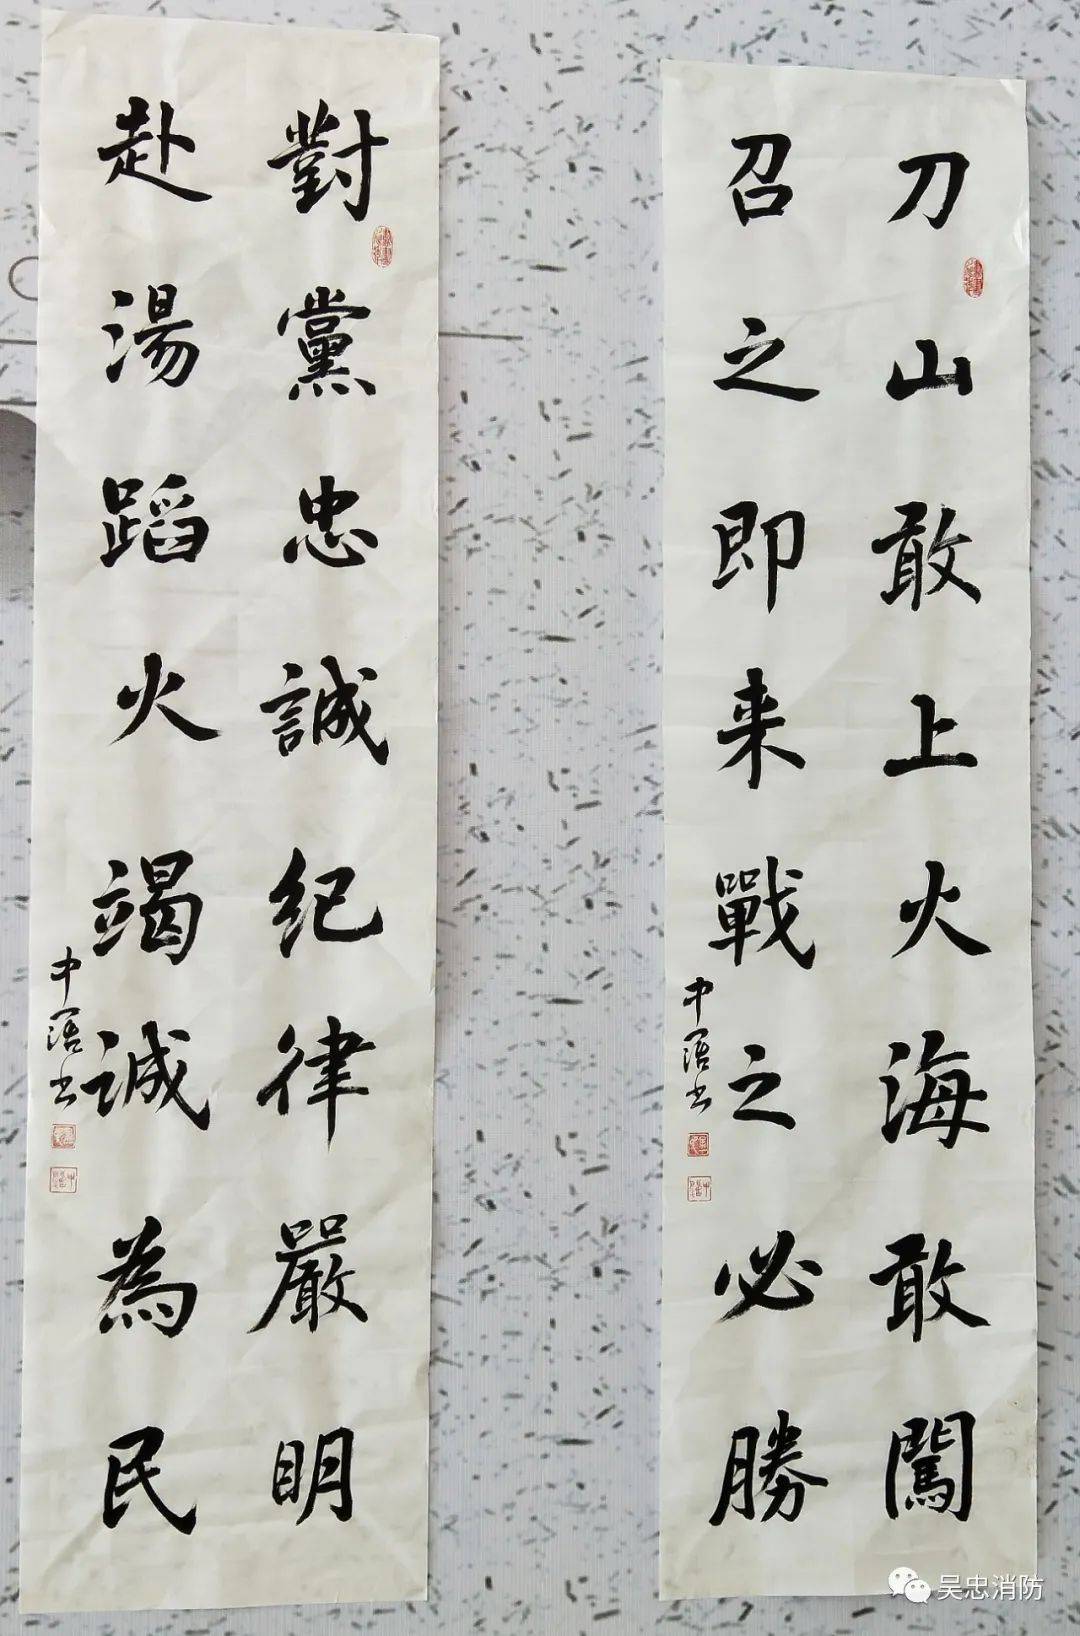 刀山敢上火海敢闖
召之即来戰之必勝
對黨忠誠紀律嚴明
赴湯蹈火竭诚為民
吴忠消防